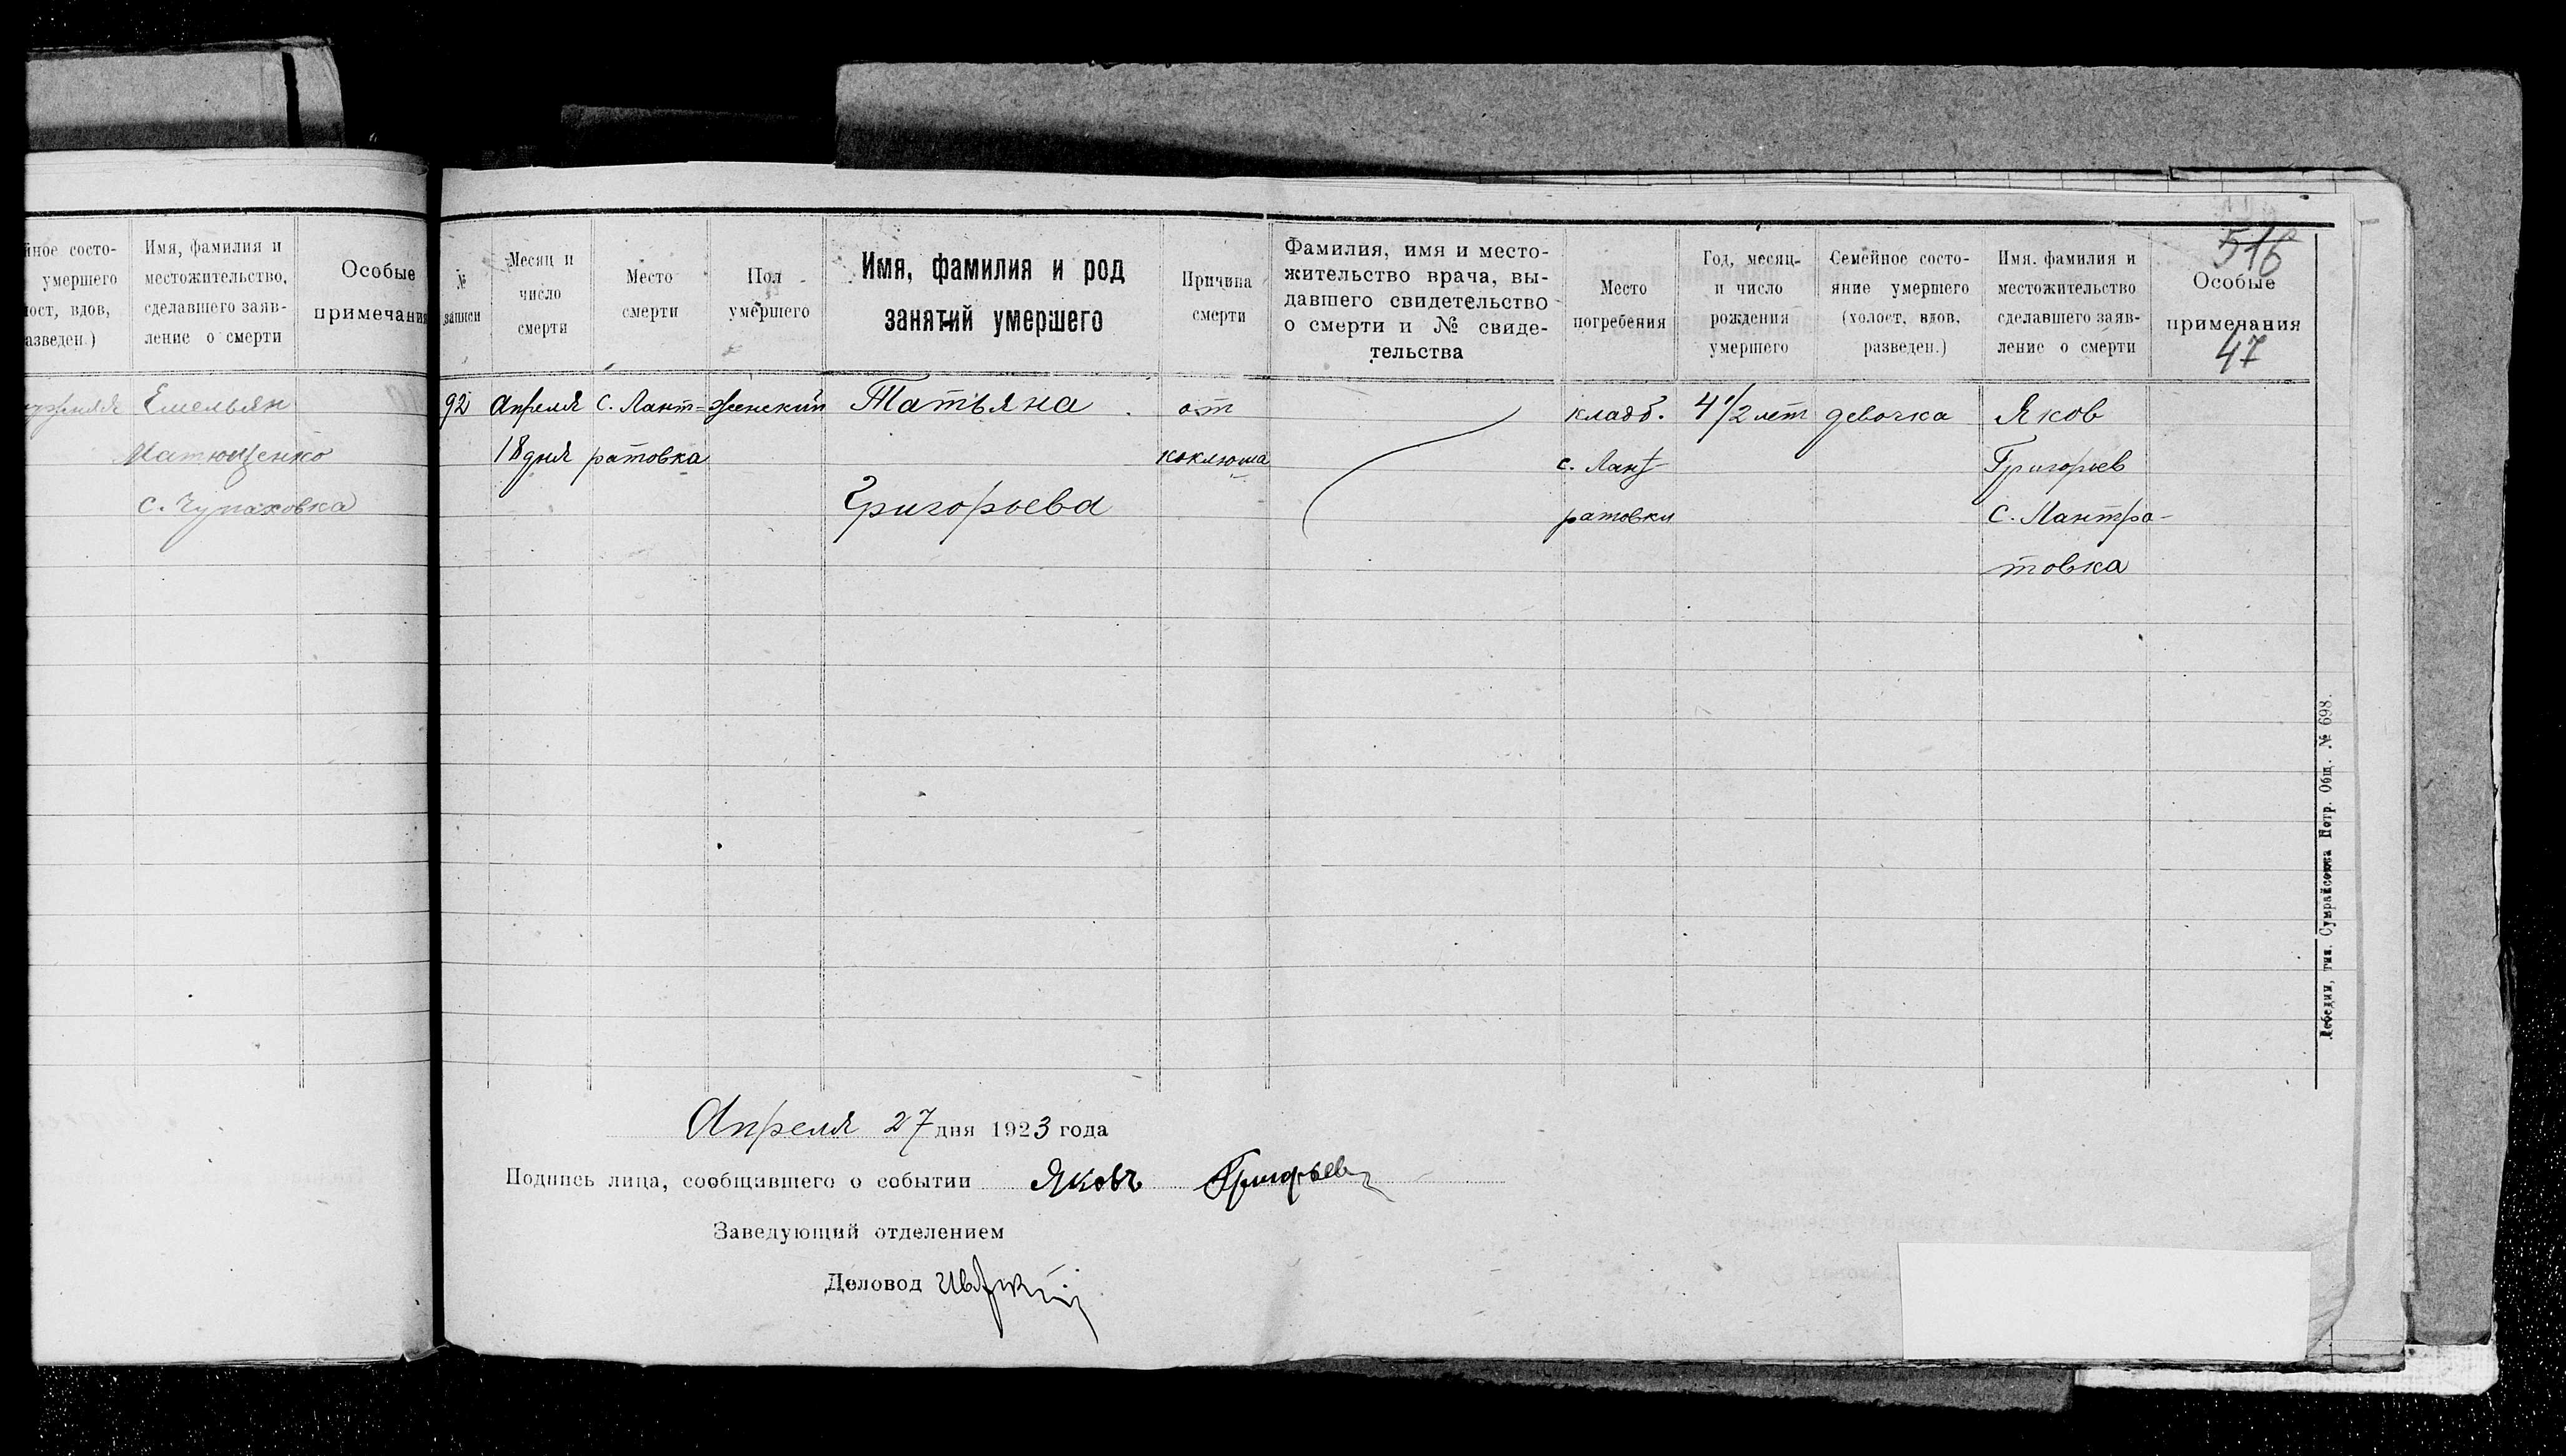 йное состо-
умершего
ост, вдов,
азведен.)
Имя, фамилия и
местожительство,
сделавшего заяв-
ление о смерти
Особые
примечания
Емельян
Матющенко
с. Чупаховка
№
записи
Месяц и
число
смерти
Место
смерти
Пол
умершего
Имя, фамилия и род
занятий умершего
Причина
смерти
Фамилия, имя и место-
жительство врача, вы-
давшего свидетельство
о смерти и № свиде-
тельства
Место
погребения
Год, месяц
и число
рождения
умершего
Семейное состо-
яние умершего
(холост, вдов,
разведен.)
Имя, фамилия и
местожительство
сделавшего заяв-
ление о смерти
516
Особые
примечания
47
92
Апреля
18 дня
С. Лант-
ратовка
женский
Татьяна
Григорьева
от
коклюша
кладб.
с. Лант-
ратовки
4 1/2 лет
девочка
Яков
Григорьев
С. Лантра-
товка
Апреля 27 дня 1923 года
Подпись лица, сообщившего о событии Яковъ Григорьев
Заведующий отделением
Деловод
Лебедин, тип. Сумрайсоюза Потр. Общ. № 698.